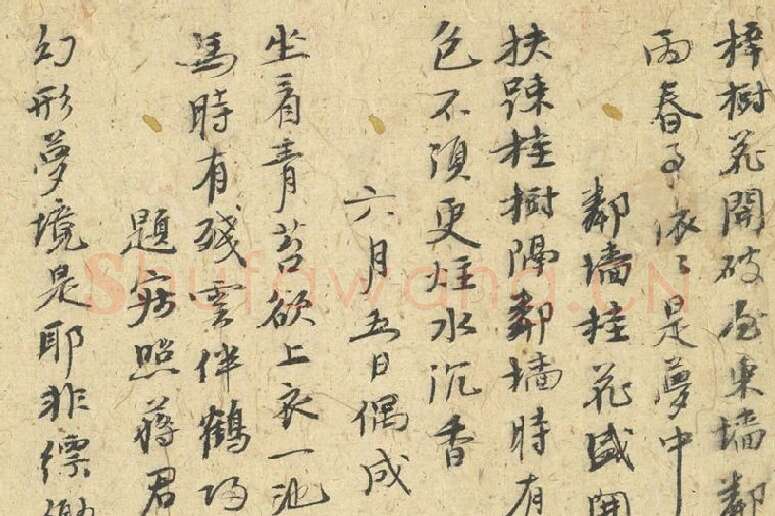 梓樹花開破屋東墻鄰
雨春事依〻是夢中
鄰墻桂花盛開
扶踈桂樹隔鄰墻時有
色不須更炷水沉香
六月五日偶成
坐看青苔欲上衣一池
馬時有殘雲伴鶴歸
題寫照蔣君
幻形夢境是耶非縹緲
Shufawang.CN